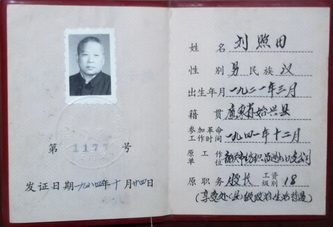 第 1177 号
发证日期 一九八四年十月廿四日
姓名 刘照田
性别 男 民族 汉
出生年月 一九二一年三月
籍贯 广东省始兴县
参加革命工作时间 一九四一年十二月
原工作单位
原职务 股长 工资级别 18